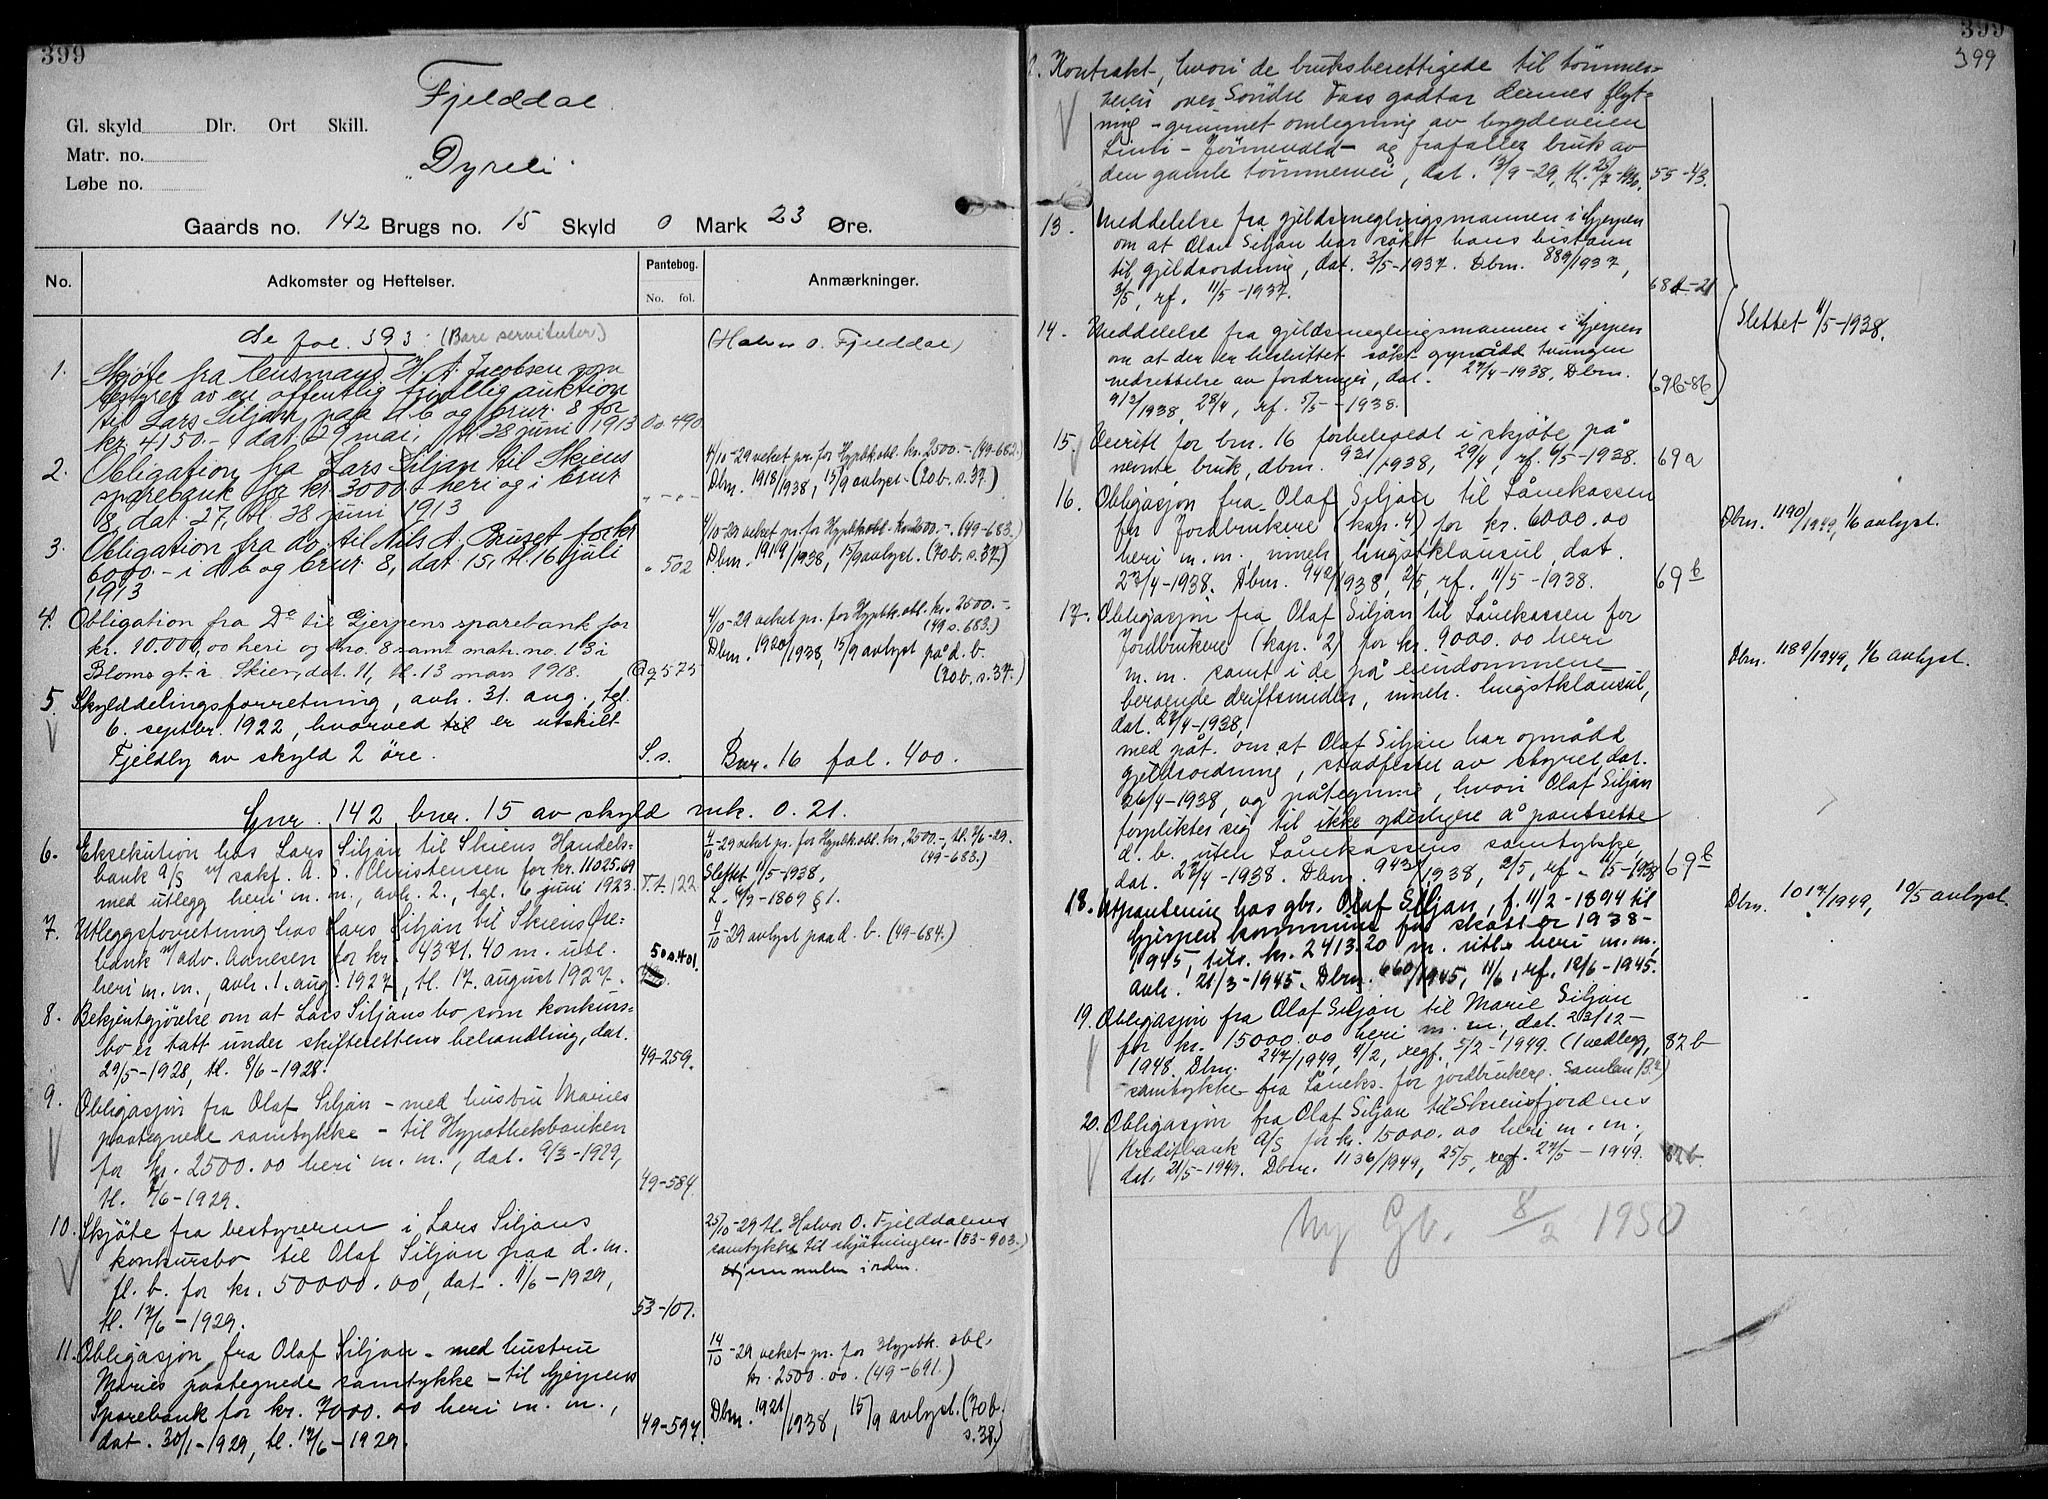 399
Fjelddal
Gl. skyld Dlr. Ort Skill.
Matr. no.
"Dyreli"
Løbe no.
Gaards no. 142 Brugs no. 15 Skyld 0 Mark 23 Øre.
No. Adkomster og Heftelser. Pantebog. No. fol. Anmærkninger.
Se fol. 393: (Bare servituter)
(Halvor O. Fjelddal)
1. Skjøte fra lensmand H. A. Jacobsen som
bestyrer av en offentlig frivillig auktion
til Lars Siljan paa d. b og brnr. 8 for
kr. 4150.- dat. 29 mai, tl. 28 juni 1913 Oo 490
2. Obligation fra Lars Siljan til Skiens
sparebank for kr. 3000 - heri og i brnr
8, dat. 27, tl. 28 juni 1913 " - " -
4/10-29 veket pr. for Hypbk.obl. kr. 2500.- (49-682.)
Dbm. 1918/1938, 15/9 avlyst. (70b. s. 37.)
3. Obligation fra do. til Nils A. Buset for kr
6000.- i d b og brnr. 8, dat. 15, tl. 16 juli
1913 " 502
4/10-29 veket pr. for Hypbk.obl. kr. 2500.-. (49-683.)
Dbm. 1919/1938, 15/9 avlyst. (70b. s. 37.)
4. Obligation fra Do til Gjerpens sparebank for
kr. 10.000,00 heri og bno. 8 samt matr. no. 13 i
Bloms gt. i Skien, dat. 11, tl. 13 mars 1918. Qq 575
4/10-29 veket pr. for Hypbk.obl. kr. 2500.-.
(49 s. 683.)
Dbm. 1920/1938, 15/9 avlyst på d. b.
(70b. s. 37.)
5. Skylddelingsforretning, avh. 31. aug., tgl.
6. septbr. 1922, hvorved til er utskilt
Fjeldly av skyld 2 øre. S.s. Bnr. 16 fol. 400.
Gnr. 142 bnr. 15 av skyld mk. 0.21.
6. Eksekution hos Lars Siljan til Skiens Handels-
bank A/S v/ sakf. A. S. Christensen for kr. 11025.69
med utlegg heri m. m., avh. 2., tgl. 6 juni 1923. T.t. 122
4/10-29 veket pr. for Hypbk.obl. kr. 2500.-, tl. 7/6-29.
(49-683.)
Slettet 11/5-1938.
L. 4/9-1869 § 1.
7. Utleggsforretning hos Lars Siljan til Skiens Øre-
bank v/ adv. Aanesen for kr. 4371.40 m. utl.
heri m. m., avh. 1. aug. 1927, tl. 17. august 1927. 50 s. 401.
4/10-29 avlyst paa d. b. (49-684.)
8. Bekjentgjørelse om at Lars Siljans bo som konkurs-
bo er tatt under skifterettens behandling, dat.
29/5-1928, tl. 8/6-1928. 49-259.
9. Obligasjon fra Olaf Siljan - med hustru Maries
paategnede samtykke - til Hypothekbanken
for kr. 2500.00 heri m. m., dat. 9/3-1929,
tl. 7/6-1929. 49-584.
10. Skjøte fra bestyreren i Lars Siljans
konkursbo til Olaf Siljan paa d. m.
fl. b. for kr. 50000.00, dat. 11/6-1929,
tl. 17/6-1929. 53-107.
25/10-29 tl. Halvor O. Fjelddalens
samtykke til skjøtningen. (53-903.)
Hjemmelen i orden.
11. Obligasjon fra Olaf Siljan - med hustru
Maries paategnede samtykke - til Gjerpens
Sparebank for kr. 7000.00 heri m. m.,
dat. 30/1-1929, tl. 17/6-1929. 49-597.
14/10-29 veket pr. for Hypbk. obl.
kr. 2500.00. (49-691.)
Dbm. 1921/1938, 15/9 avlyst. (70b.
s. 38.)
399
399
Kontrakt, hvori de bruksberettigede til tømmer-
veien over Søndre Foss godtar dennes flyt-
ning - grunnet omlegning av bygdeveien
- Jønnevald - og frafaller bruk av
den gamle tømmervei, dat. 13/9-29, tl. 25/7-1930. 55-43.
13. Meddelelse fra gjeldsmeglingsmannen i Gjerpen
om at Olaf Siljan har søkt hans bistann
til gjeldsordning, dat. 3/5-1937. Dbm. 889/1937,
3/5, rf. 11/5-1937. 68 -21
14. Meddelelse fra gjeldsmeglingsmannen i Gjerpen
om at der er besluttet søkt opnådd tvungen
nedsettelse av fordringer, dat. 27/4-1938. Dbm.
913/1938, 28/4, rf. 5/5-1938. 69b-86
Slettet 11/5-1938.
15. Veirett for bnr. 16 forbeholdt i skjøte på
nevnte bruk, dbm. 921/1938, 29/4, rf. 6/5-1938. 69a
16. Obligasjon fra Olaf Siljan til Lånekassen
for Jordbrukere (kap. 4) for kr. 6000.00
heri m. m. inneh. lugstklausul, dat.
27/4-1938. Dbm. 942/1938, 2/5, rf. 11/5-1938. 69b
Dbm. 1190/1949, 1/6 avlyst.
17. Obligasjon fra Olaf Siljan til Lånekassen for
Jordbrukere (kap. 2) for kr. 9000.00 heri
m. m. samt i de på eiendommene
beroende driftsmidler, inneh. lugstklausul,
dat. 27/4-1938,
med påt. om at Olaf Siljan har opnådd
gjeldsordning, stadfestet av styret, dat.
26/4-1938, og påtegning, hvori Olaf Siljan
forplikter sig til ikke yderligere å pantsette
d. b. uten Lånekassens samtykke,
dat. 27/4-1938. Dbm. 943/1938, 2/5, rf. 11/5-1938 69b
Dbm. 1189/1949, 1/6 avlyst.
18. Utpantning hos gbr. Olaf Siljan, f. 11/2-1894 til
Gjerpen kommune for skatter 1938-
1945, tils. kr. 2413.20 m. utl. heri m. m.,
avh. 21/3-1945. Dbm. 660/1945, 11/6, rf. 12/6-1945.
Dbm. 1017/1949, 10/5 avlyst.
19. Obligasjon fra Olaf Siljan til Marie Siljan
for kr. 15000.00 heri m. m., dat. 23/12-
1948. Dbm. 247/1949, 4/2, regf. 5/2-1949. (1 vedlegg, 82b
samtykke fra Låneks. for jordbrukere. Samlen B.)
20. Obligasjon fra Olaf Siljan til Skiensfjordens
Kreditbank A/S for kr. 15000.00 heri m. m.,
dat. 21/5-1949. Dbm. 1136/1949, 25/5, regf. 27/5-1949. 82b.
Ny Gb. 8/2 1950